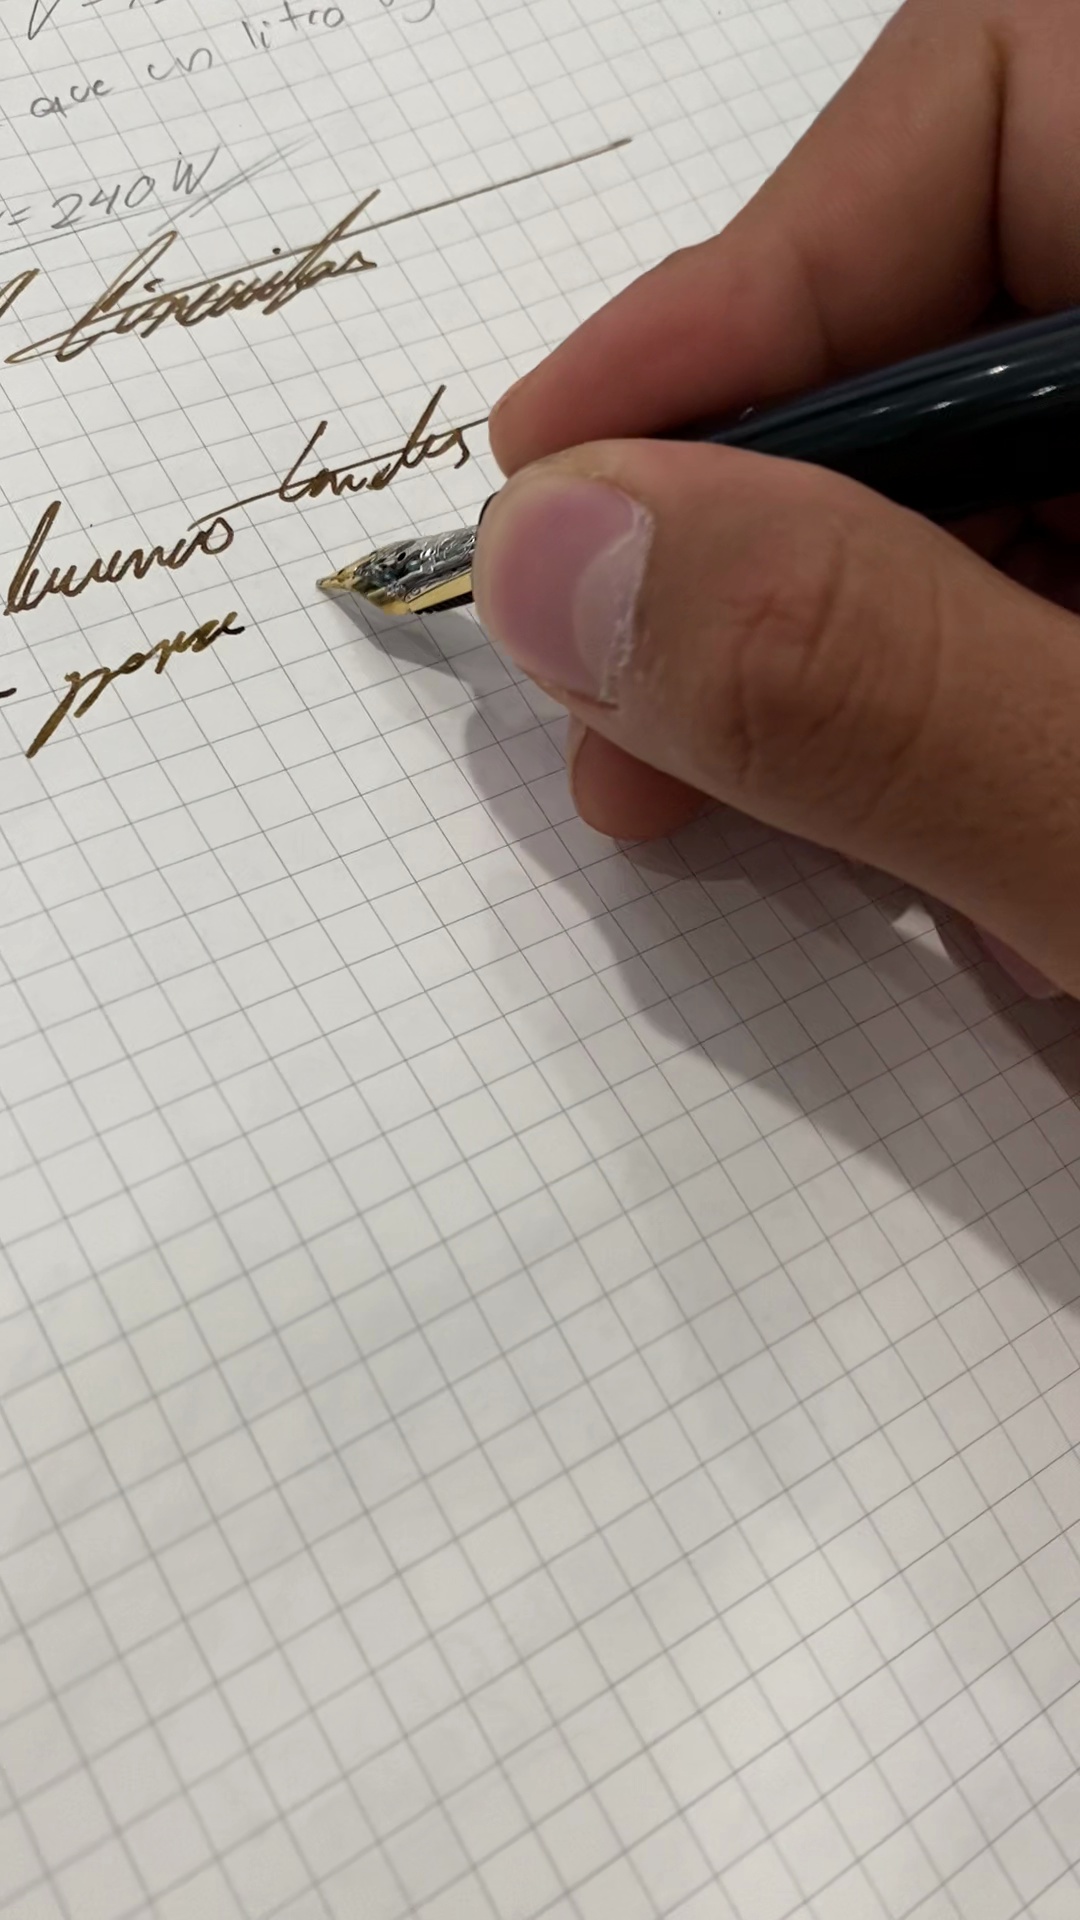 que un litro
= 240 W
Circuitos
buenas tardes
para